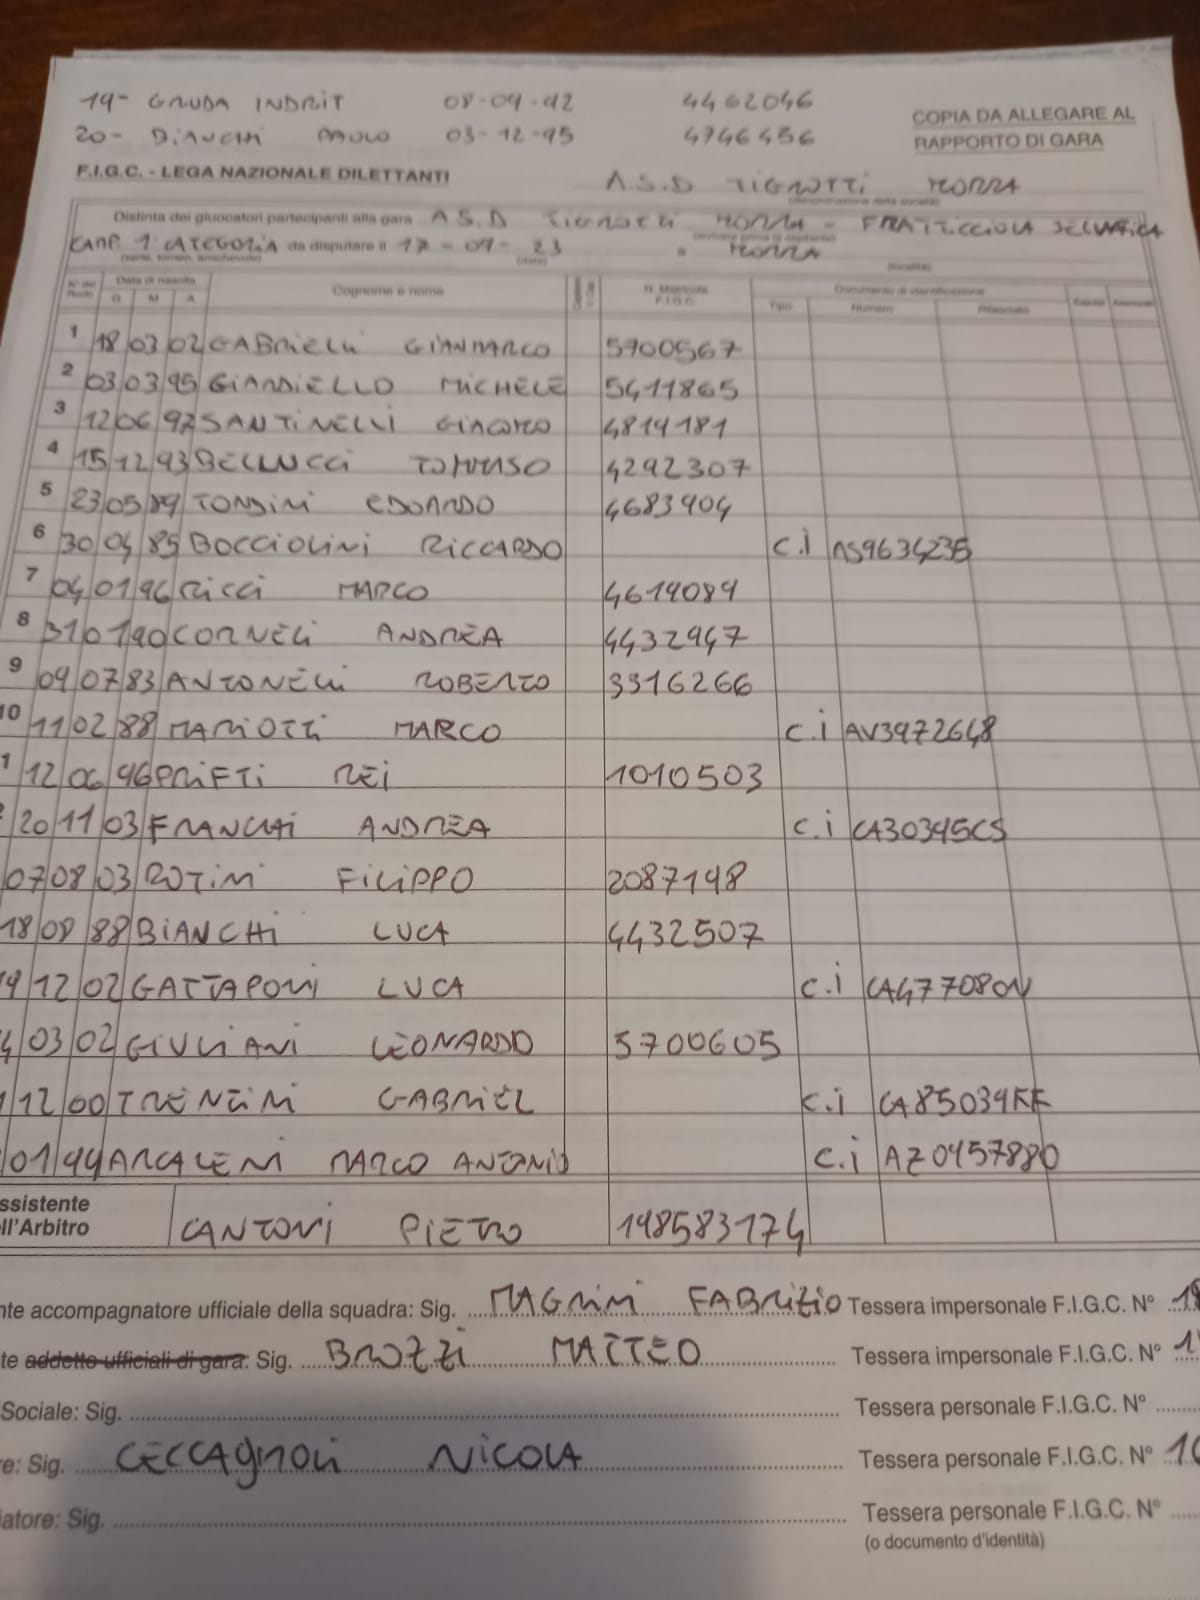 19- GRUDA INDRIT 08-09-92 4462046
20- BIANCHI PAOLO 03-12-95 4746456
COPIA DA ALLEGARE AL
RAPPORTO DI GARA
F.I.G.C. - LEGA NAZIONALE DILETTANTI A.S.D TIGNOTTI MORRA
Distinta dei giuocatori partecipanti alla gara A.S.D TIGNOTTI MORRA - FRATTICCIOLA SELVATICA
CAMP. 1ª CATEGORIA da disputare il 17-09-23 a MORRA
Data di nascita Cognome e nome N. Matricola Documento di identificazione
G M A F.I.G.C. Tipo Numero Rilasciato
1 18 03 02 GABRIELLI GIANMARCO 5700567
2 03 03 95 GIARDIELLO MICHELE 5411865
3 12 06 97 SANTINELLI GIACOMO 4814181
4 15 12 93 BELLUCCI TOMMASO 4292307
5 23 05 89 TONDINI EDOARDO 4683904
6 30 04 85 BOCCIOLINI RICCARDO c.i AS9634235
7 04 01 96 RICCI MARCO 4619084
8 31 01 90 CORNELI ANDREA 4432947
9 09 07 83 ANTONELLI ROBERTO 3316266
10 11 02 88 MARIOTTI MARCO c.i AV3972648
1 12 06 96 PRIFTI REI 1010503
20 11 03 FRANCHI ANDREA c.i CA30345CS
07 08 03 ROTINI FILIPPO 2087148
18 08 88 BIANCHI LUCA 4432507
19 12 02 GATTAPONI LUCA c.i CA47708ON
4 03 02 GIULIANI LEONARDO 5700605
1 12 00 TRENTINI GABRIEL c.i CA85034KK
01 94 ARCALENI MARCO ANTONIO c.i AZ0457880
ssistente
ll'Arbitro CANTONI PIETRO 148583174
nte accompagnatore ufficiale della squadra: Sig. MAGRINI FABRIZIO Tessera impersonale F.I.G.C. N° 18
te addetto ufficiali di gara: Sig. BROZZI MATTEO Tessera impersonale F.I.G.C. N° 1
Sociale: Sig. Tessera personale F.I.G.C. N°
re: Sig. CECCAGNOLI NICOLA Tessera personale F.I.G.C. N° 10
iatore: Sig. Tessera personale F.I.G.C. N°
(o documento d'identità)